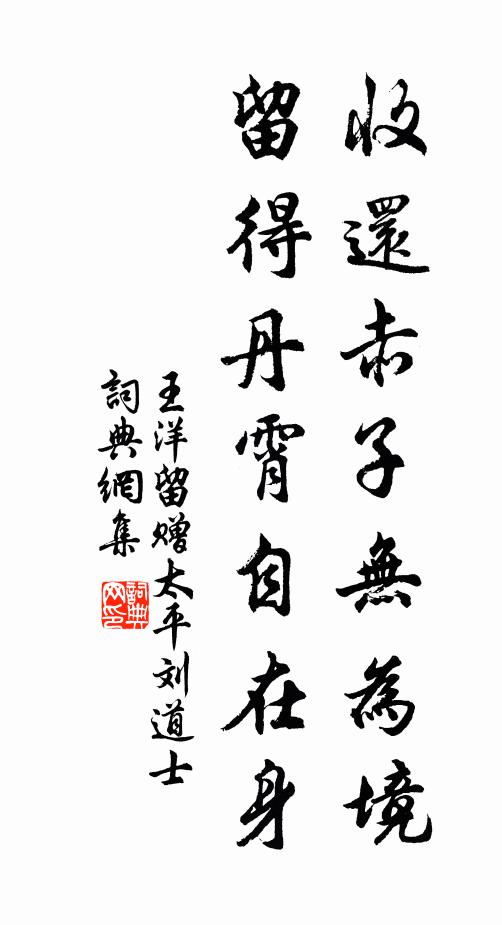 收還赤子無為境
留得丹霄自在身
王洋留赠太平刘道士
詞典網集
詞典网印